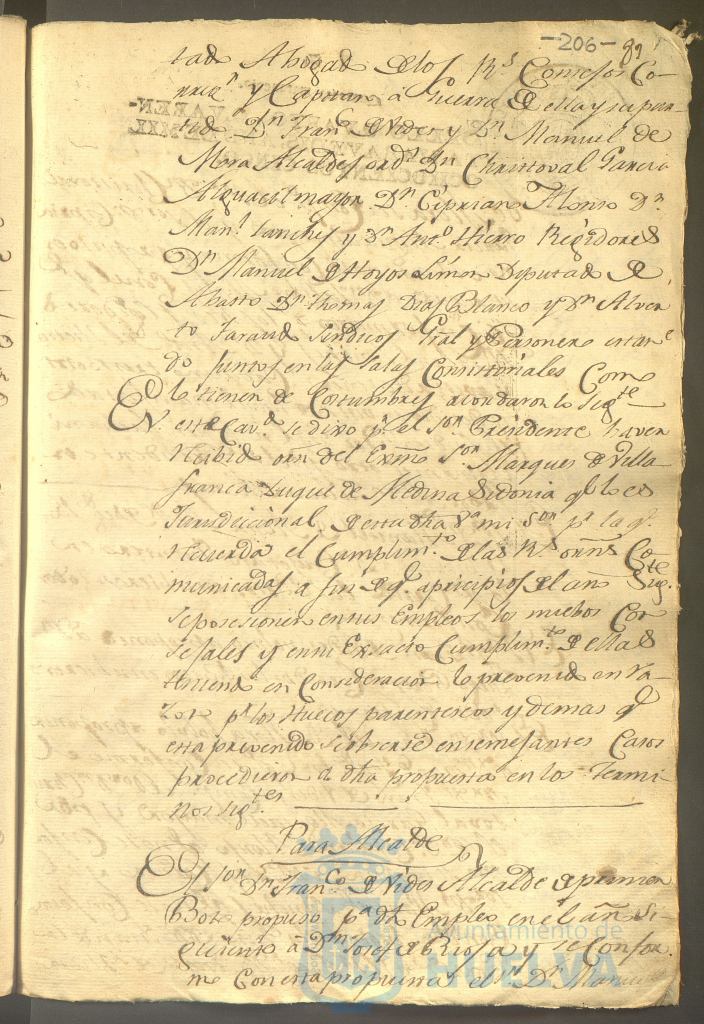 -206- 89
tad Abogad de los Rs. Consejos Co-
rrexr. y Capitan a Guerra de ella y su par-
tid Dn. Franco. de Vides y Dn. Manuel de
Mora Alcaldes ords. Dn Christoval Garcia
Alguacil mayor Dn. Ciprian Alonso Dn.
Manl. Sanches y Dn Anto. Hierro Regidores
Dn Manuel de Hoyos Limon Diputad de
Abasto Dn. Thomas Dias Blanco y Dn Alver-
to Faraud Sindicos Gral y Personero estan-
do juntos en las Salas Consistoriales Como
lo tienen de Costumbre acordaron lo sigte
En este Cavo. se dixo pr. el sor. Presidente haver
recibid orn del Exmo sor. Marques de Villa
franca Duque de Medina Sidonia qe lo es
Jurisdiccional de esta dha Va mi sor pr. la q.
recuerda el Cumplimto. de las Rs. orns Co-
municadas a fin de q. a pricipios del año Sigte.
se posesionen en sus Empleos los nuebos Con-
sejales y en su Exsacto Cumplimto. de ellas
teniend en Consideracion lo prevenid en Va-
los Huecos parentescos y demas qe
esta prevenido se observe en semejantes Casos
procedieron a dha propuesta en los Termi-
nos sigtes
Para Alcalde
El sor Dn Franco. de Vides Alcalde de primer
Boto propuso pa. dho Empleo en el año Si-
guiente á Dn Josef de Rioja y se Confor-
mo Con esta propuesta el sr. Dn Manuel
Ayuntamiento de
HUELVA